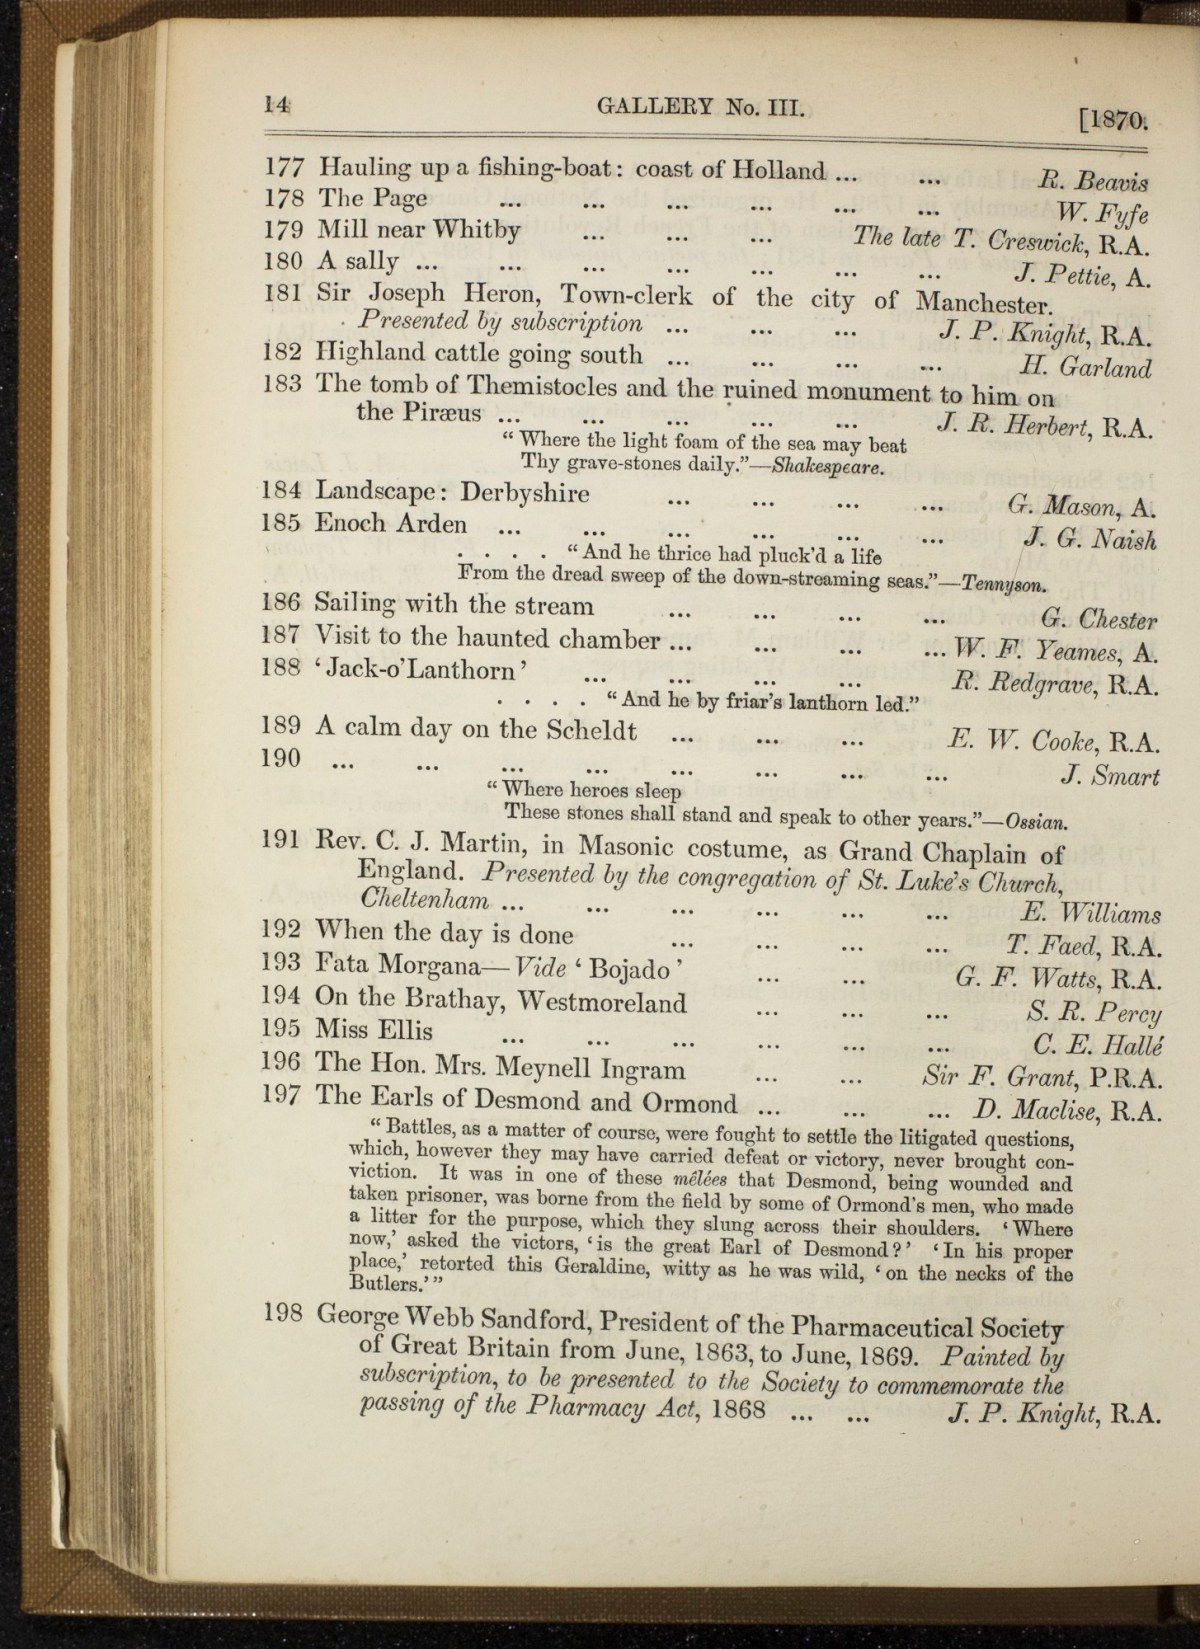 14 GALLERY No. III. [1870.
177 Hauling up a fishing-boat: coast of Holland ... ... R. Beavis
178 The Page ... ... ... ... ... ... W. Fyfe
179 Mill near Whitby ... ... ... The late T. Creswick, R.A.
180 A sally ... ... ... ... ... ... ... J. Pettie, A.
181 Sir Joseph Heron, Town-clerk of the city of Manchester.
Presented by subscription ... ... ... J. P. Knight, R.A.
182 Highland cattle going south ... ... ... ... H. Garland
183 The tomb of Themistocles and the ruined monument to him on
the Piræus ... ... ... ... ... J. R. Herbert, R.A.
“Where the light foam of the sea may beat
Thy grave-stones daily.”—Shakespeare.
184 Landscape: Derbyshire ... ... ... ... G. Mason, A.
185 Enoch Arden ... ... ... ... ... ... J. G. Naish
. . . . “And he thrice had pluck’d a life
From the dread sweep of the down-streaming seas.”—Tennyson.
186 Sailing with the stream ... ... ... ... G. Chester
187 Visit to the haunted chamber ... ... ... ... W. F. Yeames, A.
188 ‘Jack-o’Lanthorn’ ... ... ... ... R. Redgrave, R.A.
. . . . “And he by friar’s lanthorn led.”
189 A calm day on the Scheldt ... ... ... E. W. Cooke, R.A.
190 ... ... ... ... ... ... ... ... J. Smart
“Where heroes sleep
These stones shall stand and speak to other years.”—Ossian.
191 Rev. C. J. Martin, in Masonic costume, as Grand Chaplain of
England. Presented by the congregation of St. Luke’s Church,
Cheltenham ... ... ... ... ... ... E. Williams
192 When the day is done ... ... ... ... T. Faed, R.A.
193 Fata Morgana—Vide ‘Bojado’ ... ... G. F. Watts, R.A.
194 On the Brathay, Westmoreland ... ... ... S. R. Percy
195 Miss Ellis ... ... ... ... ... ... C. E. Hallé
196 The Hon. Mrs. Meynell Ingram ... ... Sir F. Grant, P.R.A.
197 The Earls of Desmond and Ormond ... ... ... D. Maclise, R.A.
“Battles, as a matter of course, were fought to settle the litigated questions,
which, however they may have carried defeat or victory, never brought con-
viction. It was in one of these mêlées that Desmond, being wounded and
taken prisoner, was borne from the field by some of Ormond’s men, who made
a litter for the purpose, which they slung across their shoulders. ‘Where
now,’ asked the victors, ‘is the great Earl of Desmond?’ ‘In his proper
place,’ retorted this Geraldine, witty as he was wild, ‘on the necks of the
Butlers.’”
198 George Webb Sandford, President of the Pharmaceutical Society
of Great Britain from June, 1863, to June, 1869. Painted by
subscription, to be presented to the Society to commemorate the
passing of the Pharmacy Act, 1868 ... ... J. P. Knight, R.A.